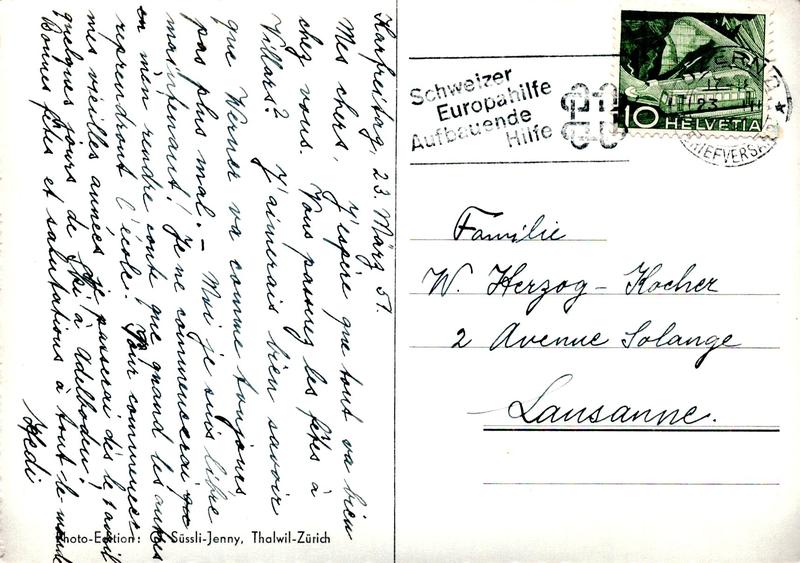 Karfreitag, 23. März 51.
Mes chers, J'espère que tout va bien
chez vous. Vous passez les fêtes à
Villars? J'aimerais bien savoir
que Werner va comme toujours
pas plus mal. – Moi je suis libre
maintenant! Je ne commencerai
en m'en rendre conte que quand les autres
reprendront l'école. Pour commencer
mes vieilles années je passerai dès le avril
quelques jours de Ski à Adelboden!
Bonnes fêtes et salutations à tout le monde
Hedi
Photo-Edition: Süssli-Jenny, Thalwil-Zürich
Schweizer
Europahilfe
Aufbauende
Hilfe
LUZERN
23
BRIEFVERSAND
10 HELVETIA
Familie
W. Herzog-Kocher
2 Avenue Solange
Lausanne.